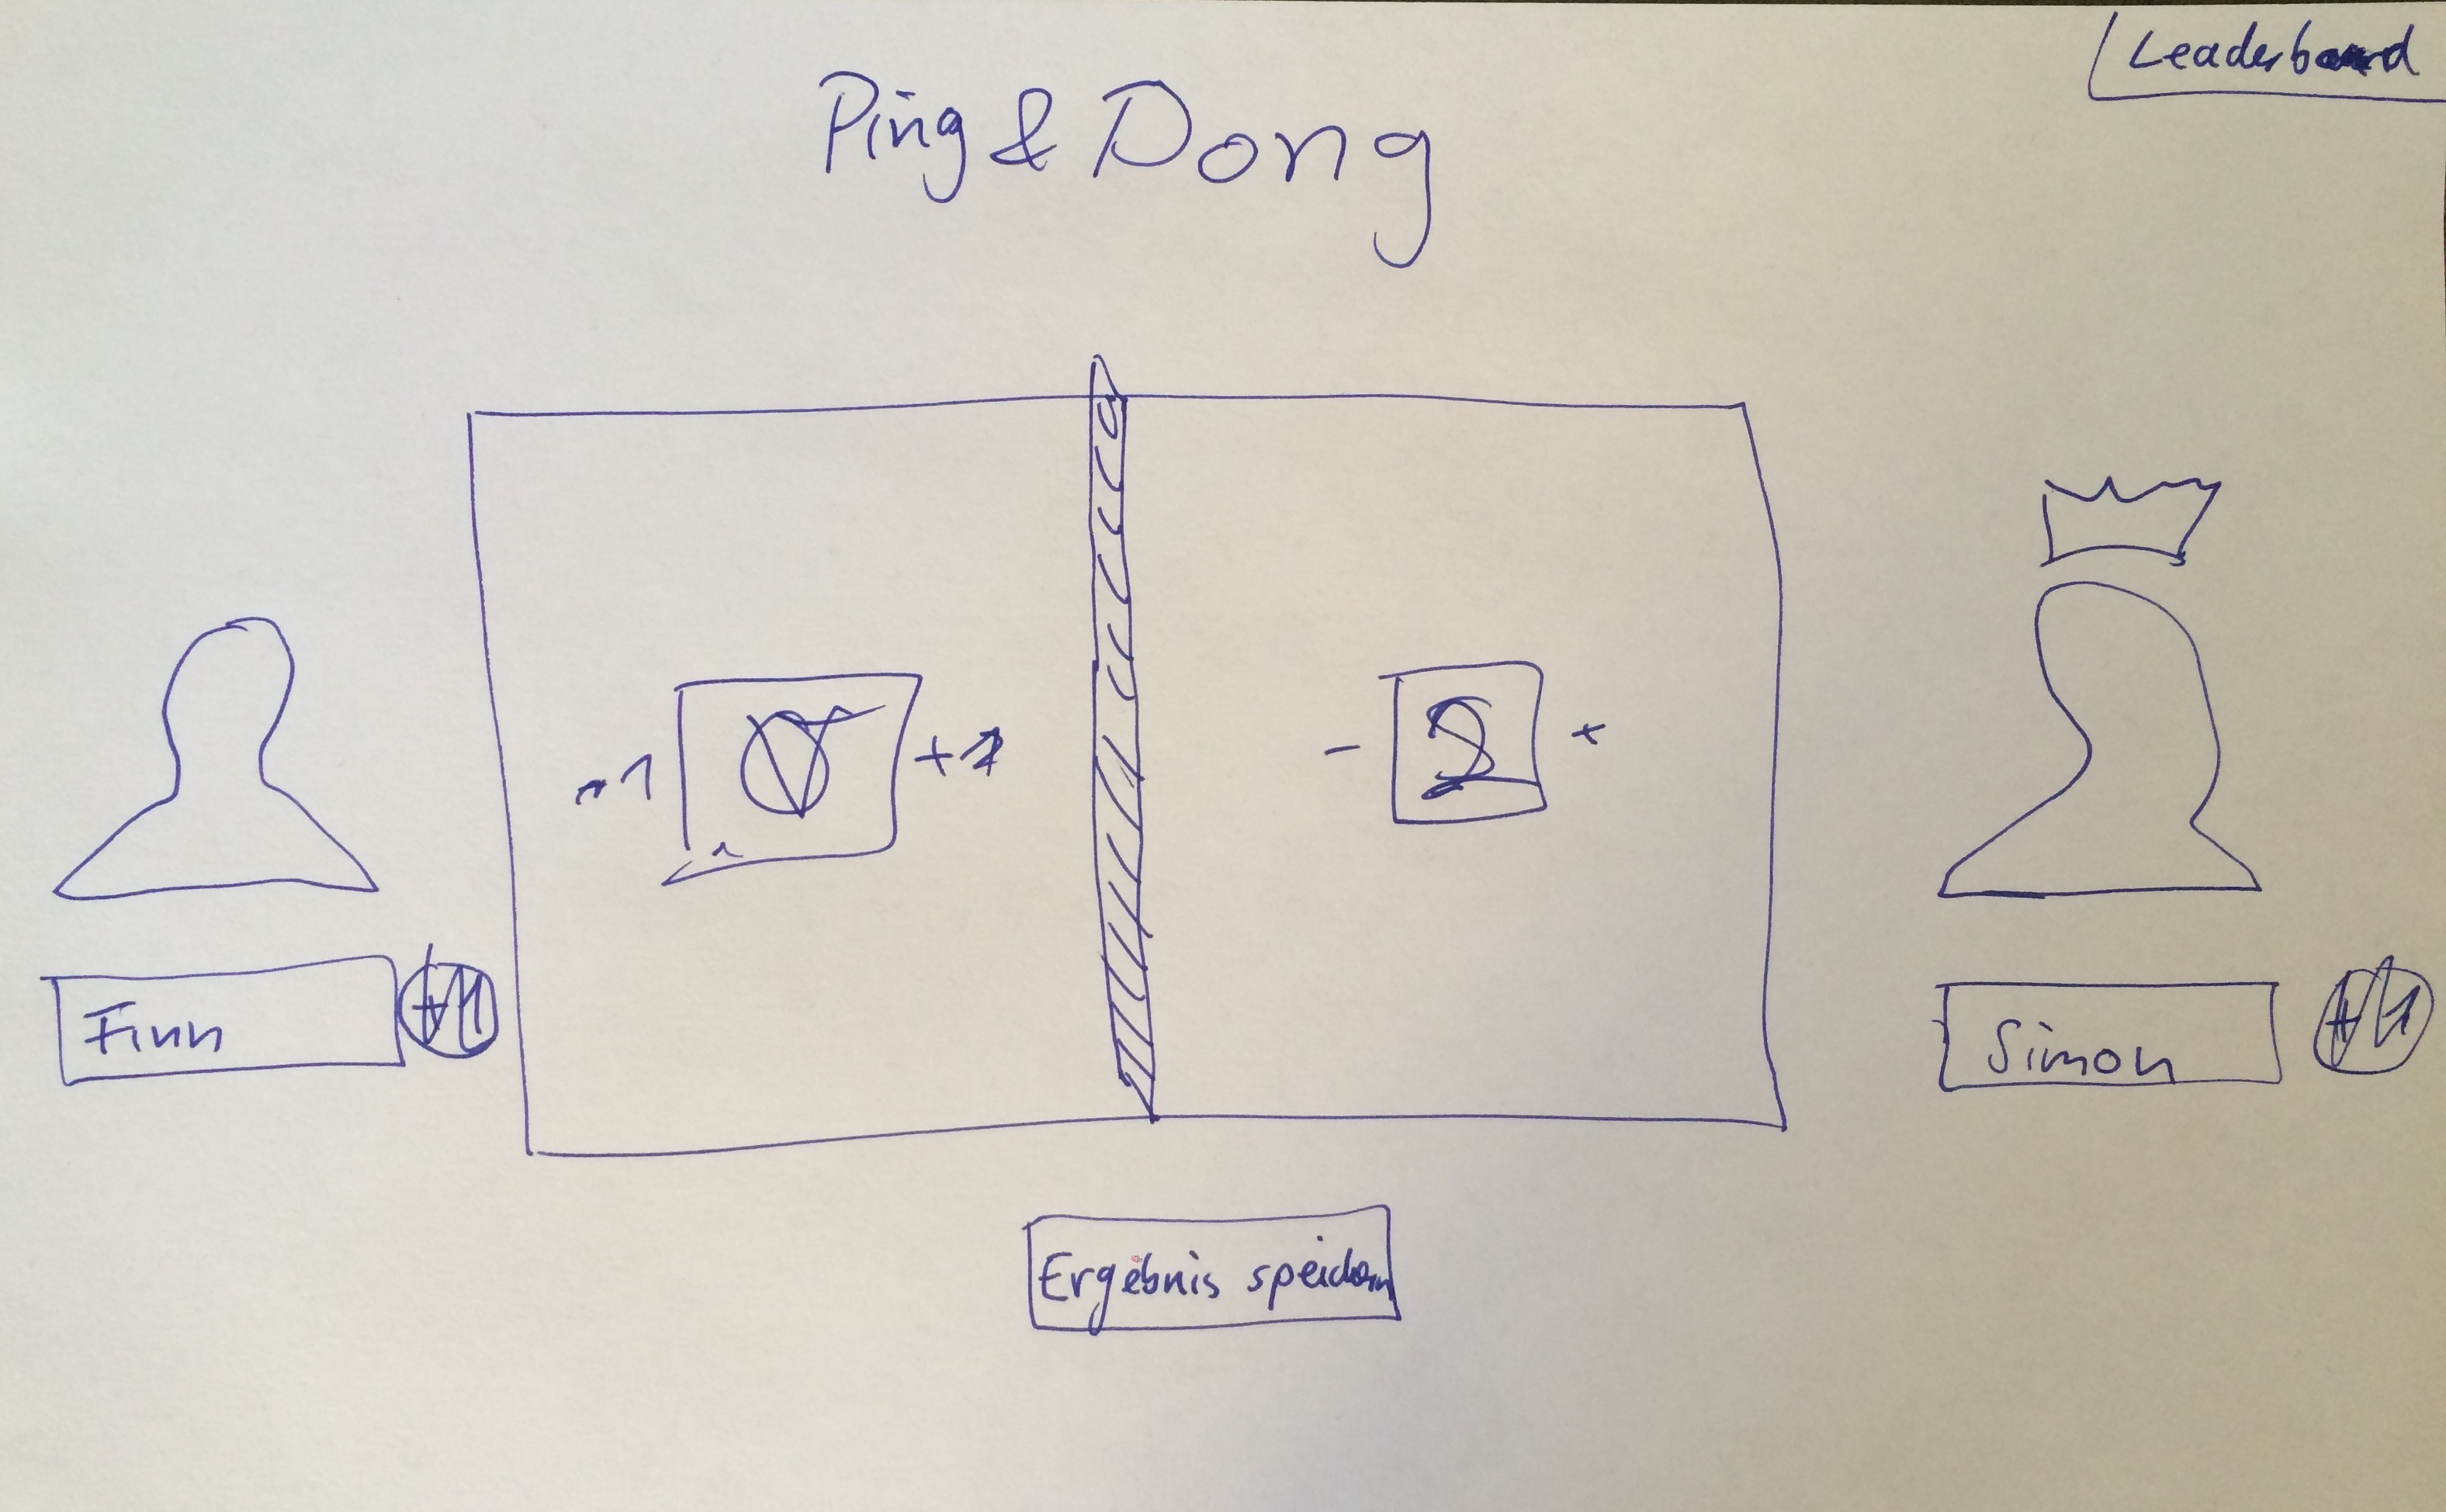 Leaderboard
Ping & Dong
-1 +1
- 2 +
Finn
Simon
Ergebnis speichern